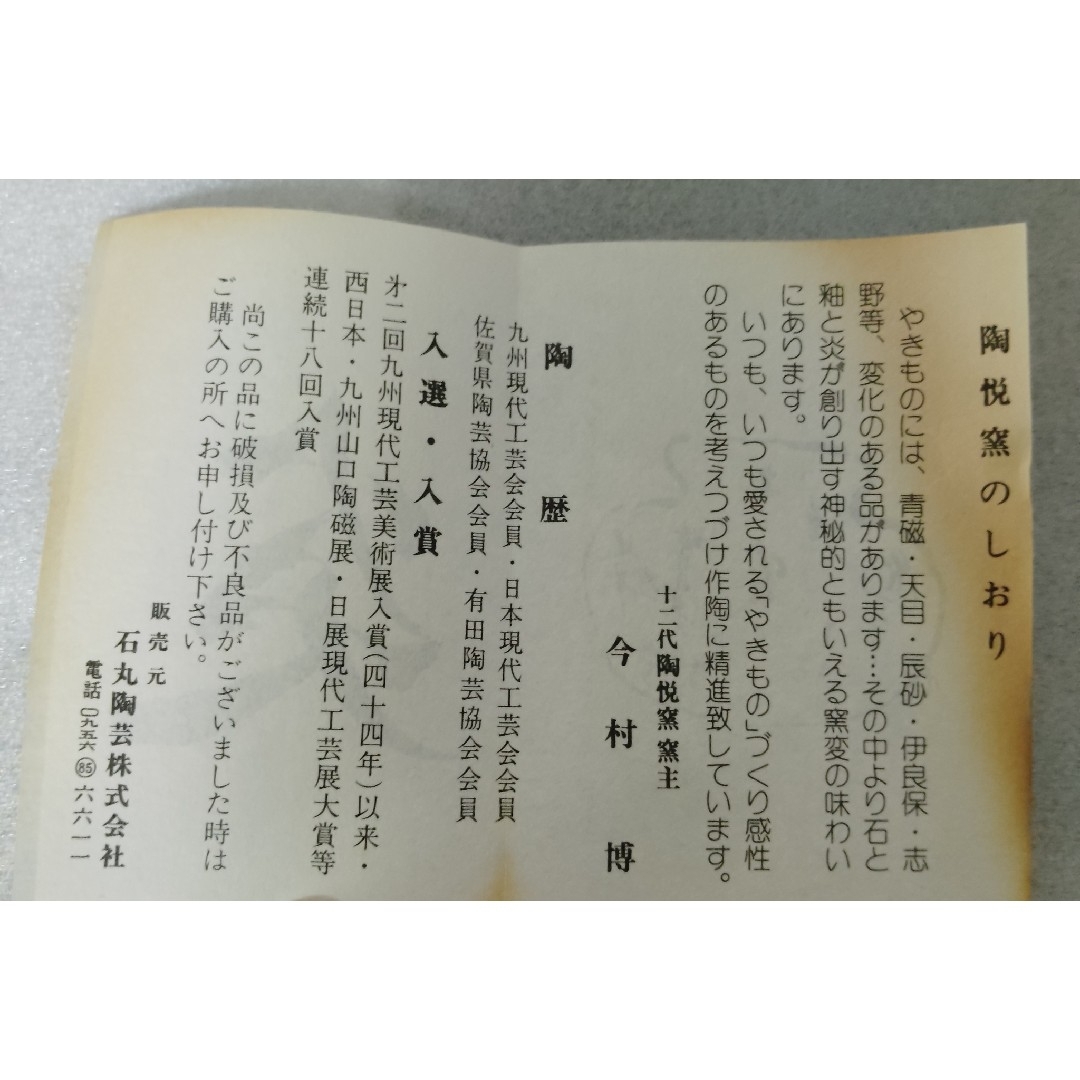 陶悦窯のしおり
やきものには、青磁・天目・辰砂・伊良保・志
野等、変化のある品があります…その中より石と
釉と炎が創り出す神秘的ともいえる窯変の味わい
にあります。
いつも、いつも愛される「やきもの」づくり感性
のあるものを考えつづけ作陶に精進致しています。
十二代陶悦窯窯主
今村博
陶歴
九州現代工芸会会員・日本現代工芸会会員
佐賀県陶芸協会会員・有田陶芸協会会員
入選・入賞
才二回九州現代工芸美術展入賞(四十四年)以来・
西日本・九州山口陶磁展・日展現代工芸展大賞等
連続十八回入賞
尚この品に破損及び不良品がございました時は
ご購入の所へお申し付け下さい。
販売元
石丸陶芸株式会社
電話〇九五六(85)六六一一